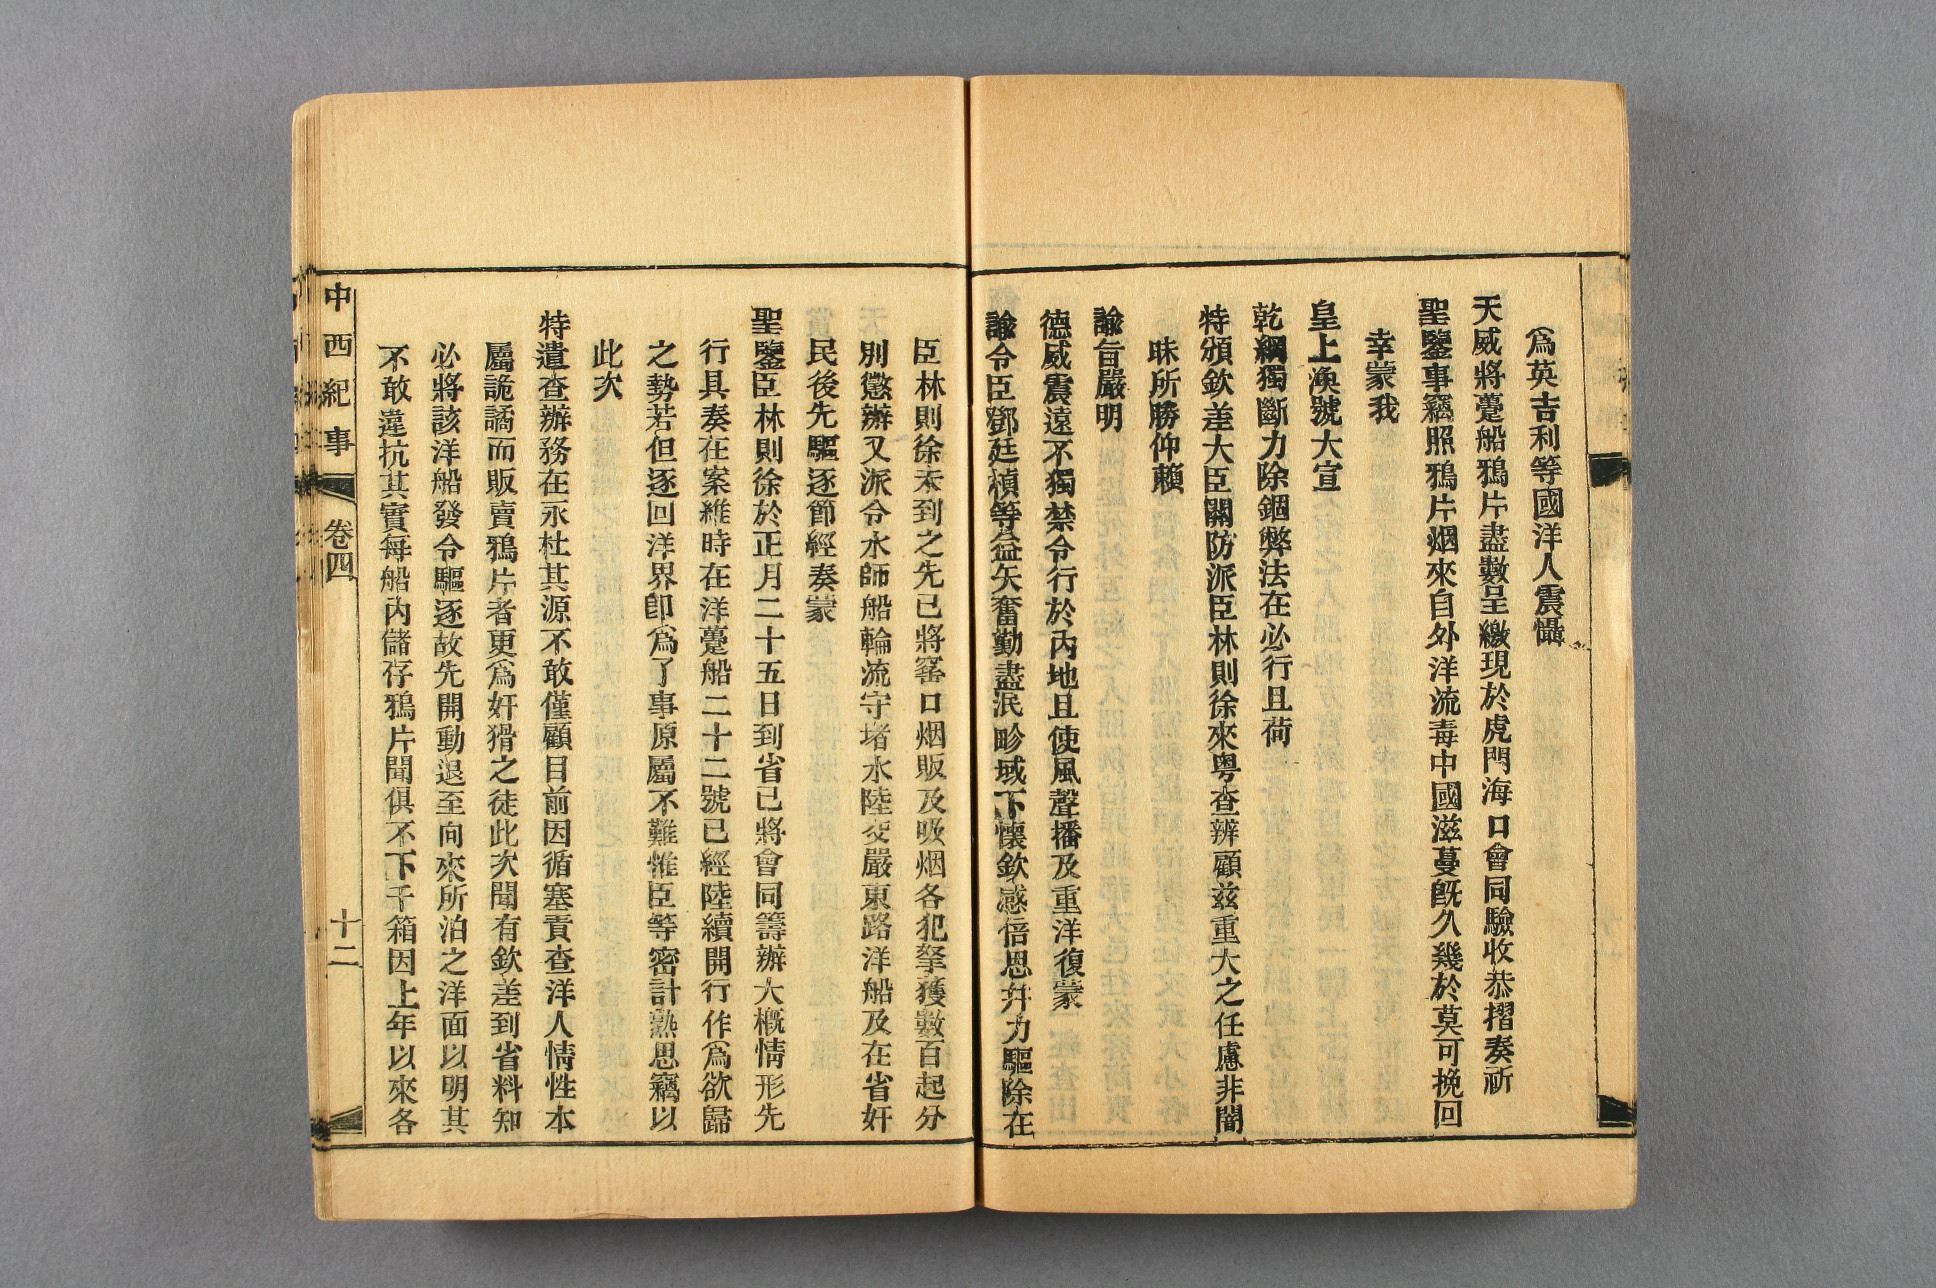 爲英吉利等國洋人震懾
天威將躉船鴉片盡數呈繳現於虎門海口會同驗收恭摺奏祈
聖鑒事竊照鴉片烟來自外洋流毒中國滋蔓旣久幾於莫可挽回
幸蒙我
皇上渙號大宣
乾綱獨斷力除錮弊法在必行且荷
特頒欽差大臣關防派臣林則徐來粵查辦顧兹重大之任慮非闇
昧所勝仰賴
諭旨嚴明
德威震遠不獨禁令行於內地且使風聲播及重洋復蒙
諭令臣鄧廷楨等益矢奮勤盡泯畛域下懷欽感倍思幷力驅除在
臣林則徐未到之先已將窰口烟販及吸烟各犯拏獲數百起分
別懲辦又派令水師船輪流守堵水陸交嚴東路洋船及在省奸
民後先驅逐節經奏蒙
聖鑒臣林則徐於正月二十五日到省已將會同籌辦大槪情形先
行具奏在案維時在洋躉船二十二號已經陸續開行作爲欲歸
之勢若但逐回洋界卽爲了事原屬不難惟臣等密計熟思竊以
此次
特遣查辦務在永杜其源不敢僅顧目前因循塞責查洋人情性本
屬詭譎而販賣鴉片者更爲奸猾之徒此次聞有欽差到省料知
必將該洋船發令驅逐故先開動退至向來所泊之洋面以明其
不敢違抗其實每船內儲存鴉片聞俱不下千箱因上年以來各
中西紀事 卷四 十二